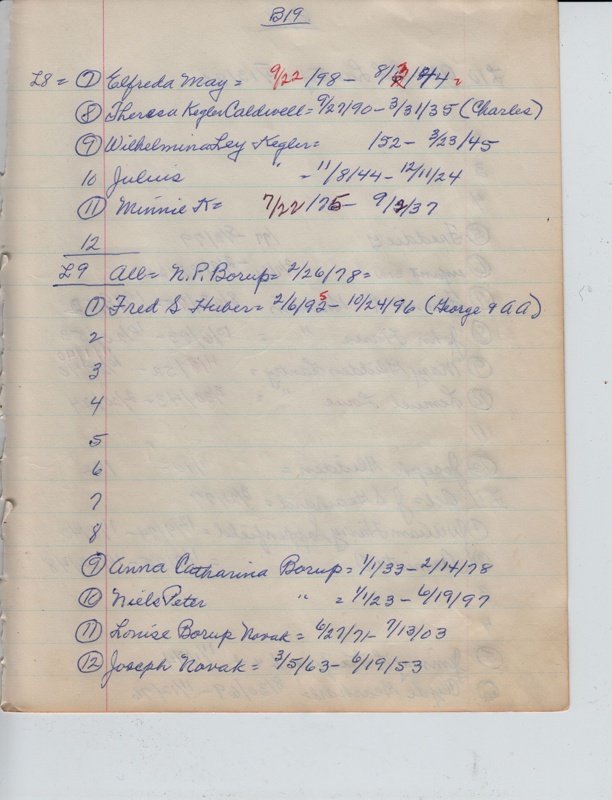 B19
L8 = 7 Elfreda May = 9/22/98 - 8/3/44
8 Theresa Kegler Caldwell = 9/27/90 - 3/31/35 (Charles)
9 Wilhelmina Ley Kegler = /52 - 3/23/45
10 Julius " = 11/8/44 - 12/11/24
11 Minnie K = 7/22/75 - 9/2/37
12
L9 All = N.P. Borup = 2/26/78 =
1 Fred S Huber = 2/6/95 - 10/24/96 (George & AA)
2
3
4
5
6
7
8
9 Anna Catharina Borup = 1/1/33 - 2/14/78
10 Niels Peter " = 1/1/23 - 6/19/97
11 Louise Borup Novak = 6/27/71 - 7/13/03
12 Joseph Novak = 3/5/63 - 6/19/53